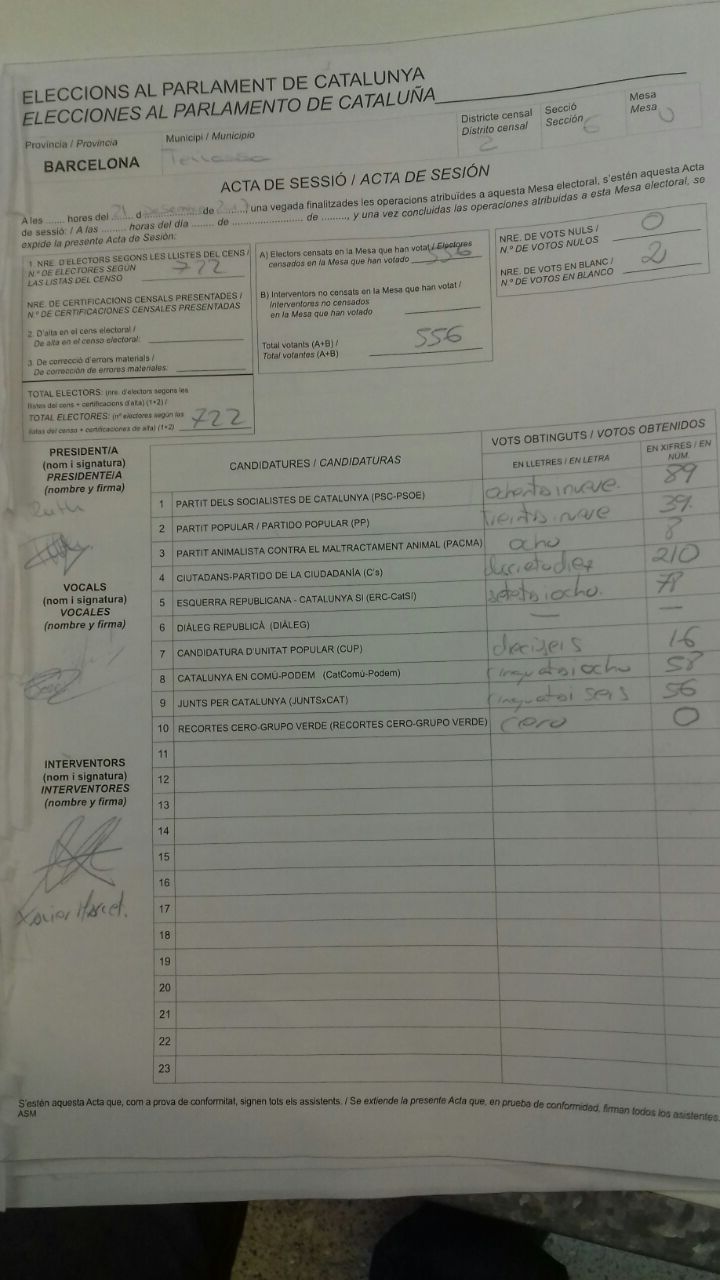 ELECCIONS AL PARLAMENT DE CATALUNYA
ELECCIONES AL PARLAMENTO DE CATALUÑA
Província / Provincia
BARCELONA
Municipi / Municipio
Terrassa
Districte censal
Distrito censal
2
Secció
Sección
6
Mesa
Mesa
U
ACTA DE SESSIÓ / ACTA DE SESIÓN
A les ....... hores del 21 d desembre de 2017, una vegada finalitzades les operacions atribuïdes a aquesta Mesa electoral, s'estén aquesta Acta
de sessió: / A las ........ horas del día ....... de .................... de ........, y una vez concluidas las operaciones atribuidas a esta Mesa electoral, se
expide la presente Acta de Sesión:
1. NRE. D'ELECTORS SEGONS LES LLISTES DEL CENS /
N.º DE ELECTORES SEGÚN
LAS LISTAS DEL CENSO 722
NRE. DE CERTIFICACIONS CENSALS PRESENTADES /
N.º DE CERTIFICACIONES CENSALES PRESENTADAS
2. D'alta en el cens electoral /
De alta en el censo electoral:
3. De correcció d'errors materials /
De corrección de errores materiales:
TOTAL ELECTORS: (nre. d'electors segons les
llistes del cens + certificacions d'alta) (1+2) /
TOTAL ELECTORES: (nº electores según las
listas del censo + certificaciones de alta) (1+2) 722
A) Electors censats en la Mesa que han votat / Electores
censados en la Mesa que han votado 556
B) Interventors no censats en la Mesa que han votat /
Interventores no censados
en la Mesa que han votado
Total votants (A+B) /
Total votantes (A+B) 556
NRE. DE VOTS NULS /
N.º DE VOTOS NULOS 0
NRE. DE VOTS EN BLANC /
N.º DE VOTOS EN BLANCO 2
PRESIDENT/A
(nom i signatura)
PRESIDENTE/A
(nombre y firma)
Ruth
VOCALS
(nom i signatura)
VOCALES
(nombre y firma)
INTERVENTORS
(nom i signatura)
INTERVENTORES
(nombre y firma)
Xavier Marcet.
CANDIDATURES / CANDIDATURAS
VOTS OBTINGUTS / VOTOS OBTENIDOS
EN LLETRES / EN LETRA
EN XIFRES / EN NÚM.
1 PARTIT DELS SOCIALISTES DE CATALUNYA (PSC-PSOE) ochentainueve. 89
2 PARTIT POPULAR / PARTIDO POPULAR (PP) treintainueve 39.
3 PARTIT ANIMALISTA CONTRA EL MALTRACTAMENT ANIMAL (PACMA) ocho 8
4 CIUTADANS-PARTIDO DE LA CIUDADANÍA (C's) 210
5 ESQUERRA REPUBLICANA - CATALUNYA SÍ (ERC-CatSí) 78
6 DIÀLEG REPUBLICÀ (DIÀLEG) — —
7 CANDIDATURA D'UNITAT POPULAR (CUP) deciseis 16
8 CATALUNYA EN COMÚ-PODEM (CatComú-Podem) 58
9 JUNTS PER CATALUNYA (JUNTSxCAT) 56
10 RECORTES CERO-GRUPO VERDE (RECORTES CERO-GRUPO VERDE) cero 0
11
12
13
14
15
16
17
18
19
20
21
22
23
S'estén aquesta Acta que, com a prova de conformitat, signen tots els assistents. / Se extiende la presente Acta que, en prueba de conformidad, firman todos los asistentes.
ASM